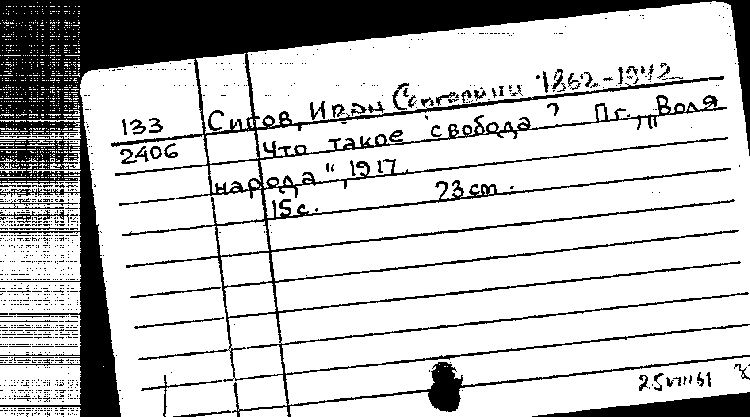 133 Ситов, Иван Сергеевич 1862-1942
2406 Что такое свобода? Пг., "Воля
народа", 1917.
15с. 23 cm.
25 VIII 61